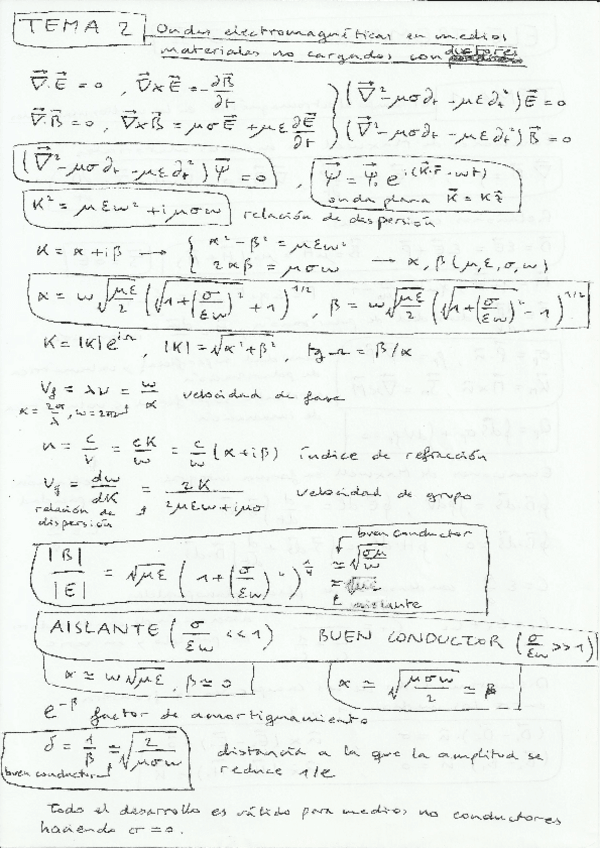 TEMA 2 Ondas electromagnéticas en medios
materiales no cargados conductores
∇⃗·E⃗ = 0 , ∇⃗×E⃗ = -∂B⃗/∂t } (∇⃗² - μσ∂t - με∂t²)E⃗ = 0
∇⃗·B⃗ = 0, ∇⃗×B⃗ = μσE⃗ + με ∂E⃗/∂t } (∇⃗² - μσ∂t - με∂t²)B⃗ = 0
(∇⃗² - μσ∂t - με∂t²)Ψ⃗ = 0 , Ψ⃗ = Ψ⃗₀ e^{i(K⃗·r⃗ - ωt)}
onda plana K⃗ = Kẑ
K² = μεω² + iμσω relación de dispersión
K = α + iβ → { α² - β² = μεω²
2αβ = μσω → α, β(μ, ε, σ, ω)
α = ω√(με/2) (√(1+(σ/εω)²) + 1)^{1/2} , β = ω√(με/2) (√(1+(σ/εω)²) - 1)^{1/2}
K = |K|e^{iΩ} , |K| = √(α²+β²) , tg Ω = β/α
V_f = λν = ω/α velocidad de fase
α = 2π/λ , ω = 2πν
n = c/v = cK/ω = c/ω (α + iβ) índice de refracción
V_g = dω/dK = 2K/(2μεω + iμσ) velocidad de grupo
relación de
dispersión
buen conductor
|B|/|E| = √με (1 + (σ/εω)²)^{1/4} ≃ √(σμ/ω)
≃ √με
aislante
AISLANTE (σ/εω << 1) BUEN CONDUCTOR (σ/εω >> 1)
α ≃ ω√με , β ≃ 0 α ≃ √(μσω/2) ≃ β
e^{-β} factor de amortiguamiento
δ = 1/β ≃ √(2/μσω) distancia a la que la amplitud se
buen conductor reduce 1/e
Todo el desarrollo es válido para medios no conductores
haciendo σ = 0.